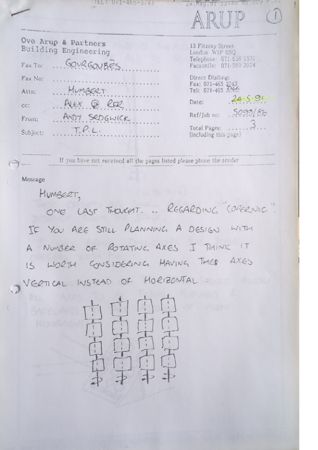 ARUP
1
Ove Arup & Partners
Building Engineering
13 Fitzroy Street
London W1P 6BQ
Telephone 071-636 1531
Facsimile 071-580 3924
Fax To: GOURGOUBÈS
Fax No:
Direct Dialling:
Fax: 071-465
Tel: 071-465
Attn: HUMBERT
cc: ALEX @ RFR
Date: 24.5.91
From: ANDY SEDGWICK
Ref/Job no:
Subject: T.P.L.
Total Pages: 3
(including this page)
If you have not received all the pages listed please phone the sender
Message
HUMBERT,
ONE LAST THOUGHT... REGARDING
IF YOU ARE STILL PLANNING A DESIGN WITH
A NUMBER OF ROTATING AXES I THINK IT
IS WORTH CONSIDERING HAVING THE AXES
VERTICAL INSTEAD OF HORIZONTAL